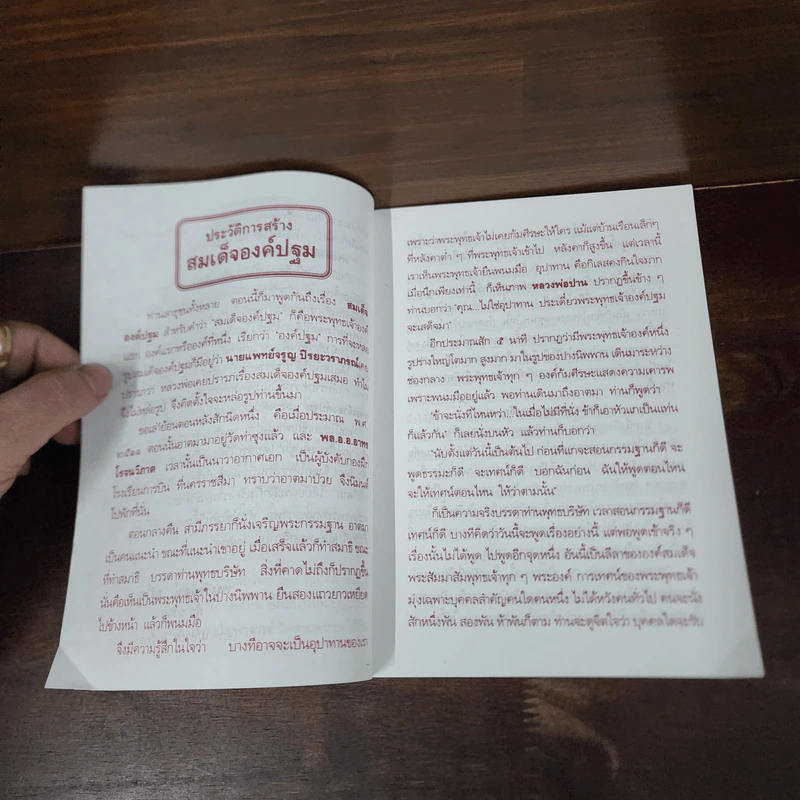 ประวัติการสร้าง
สมเด็จองค์ปฐม
ท่านสาธุชนทั้งหลาย ตอนนี้ก็มาพูดกันถึงเรื่อง สมเด็จ
องค์ปฐม สำหรับคำว่า "สมเด็จองค์ปฐม" ก็คือพระพุทธเจ้าองค์
แรก องค์แรกหรือองค์ที่หนึ่ง เรียกว่า "องค์ปฐม" การที่จะหล่อ
รูปสมเด็จองค์ปฐมก็มีอยู่ว่า นายแพทย์จรูญ ปิรยะวราภรณ์ เคย
ปรารภว่า หลวงพ่อเคยปรารภเรื่องสมเด็จองค์ปฐมเสมอ ทำไม
จึงไม่หล่อรูป จึงคิดตั้งใจจะหล่อรูปท่านขึ้นมา
ขอเล่าย้อนตอนหลังสักนิดหนึ่ง คือเมื่อประมาณ พ.ศ.
๒๕๑๑ ตอนนั้นอาตมามาอยู่วัดท่าซุงแล้ว และ พล.อ.อ.อาทร
โรจนวิภาต เวลานั้นเป็นนาวาอากาศเอก เป็นผู้บังคับกองฝึก
โรงเรียนการบิน ที่นครราชสีมา ทราบว่าอาตมาป่วย จึงนิมนต์
ไปพักที่นั่น
ตอนกลางคืน สามีภรรยาก็นั่งเจริญพระกรรมฐาน อาตมา
เป็นคนแนะนำ ขณะที่แนะนำเขาอยู่ เมื่อเสร็จแล้วก็ทำสมาธิ ขณะ
ที่ทำสมาธิ บรรดาท่านพุทธบริษัท สิ่งที่คาดไม่ถึงก็ปรากฏขึ้น
นั่นคือเห็นเป็นพระพุทธเจ้าในปางนิพพาน ยืนสองแถวยาวเหยียด
ไปข้างหน้า แล้วก็พนมมือ
จึงมีความรู้สึกในใจว่า บางทีอาจจะเป็นอุปาทานของเรา
เพราะว่าพระพุทธเจ้าไม่เคยก้มศีรษะให้ใคร แม้แต่บ้านเรือนเล็กๆ
ที่หลังคาต่ำ ๆ ที่พระพุทธเจ้าเข้าไป หลังคาก็สูงขึ้น แต่เวลานี้
เราเห็นพระพุทธเจ้ายืนพนมมือ อุปาทาน คือกิเลสคงกินใจมาก
เมื่อนึกเพียงเท่านี้ ก็เห็นภาพ หลวงพ่อปาน ปรากฏขึ้นข้าง ๆ
ท่านบอกว่า "คุณ...ไม่ใช่อุปาทาน ประเดี๋ยวพระพุทธเจ้าองค์ปฐม
จะเสด็จมา"
อีกประมาณสัก ๕ นาที ปรากฏว่ามีพระพุทธเจ้าองค์หนึ่ง
รูปร่างใหญ่โตมาก สูงมาก มาในรูปของปางนิพพาน เดินมาระหว่าง
ช่องกลาง พระพุทธเจ้าทุก ๆ องค์ก้มศีรษะแสดงความเคารพ
เพราะพนมมืออยู่แล้ว พอท่านเดินมาถึงอาตมา ท่านก็พูดว่า
"ข้าจะนั่งที่ไหนหว่า...ในเมื่อไม่มีที่นั่ง ข้าก็เอาหัวแกเป็นแท่น
ก็แล้วกัน" ก็เลยนั่งบนหัว แล้วท่านก็บอกว่า
"นับตั้งแต่วันนี้เป็นต้นไป ก่อนที่แกจะสอนกรรมฐานก็ดี จะ
พูดธรรมะก็ดี จะเทศน์ก็ดี บอกฉันก่อน ฉันให้พูดตอนไหน
จะให้เทศน์ตอนไหน ให้ว่าตามนั้น"
ก็เป็นความจริงบรรดาท่านพุทธบริษัท เวลาสอนกรรมฐานก็ดี
เทศน์ก็ดี บางทีคิดว่าวันนี้จะพูดเรื่องอย่างนี้ แต่พอพูดเข้าจริง ๆ
เรื่องนั้นไม่ได้พูด ไปพูดอีกจุดหนึ่ง อันนี้เป็นลีลาขององค์สมเด็จ
พระสัมมาสัมพุทธเจ้าทุก ๆ พระองค์ การเทศน์ของพระพุทธเจ้า
มุ่งเฉพาะบุคคลสำคัญคนใดคนหนึ่ง ไม่ได้หวังคนทั่วไป คนจะนั่ง
สักหนึ่งพัน สองพัน ห้าพันก็ตาม ท่านจะดูจิตใจว่า บุคคลใดจะรับ